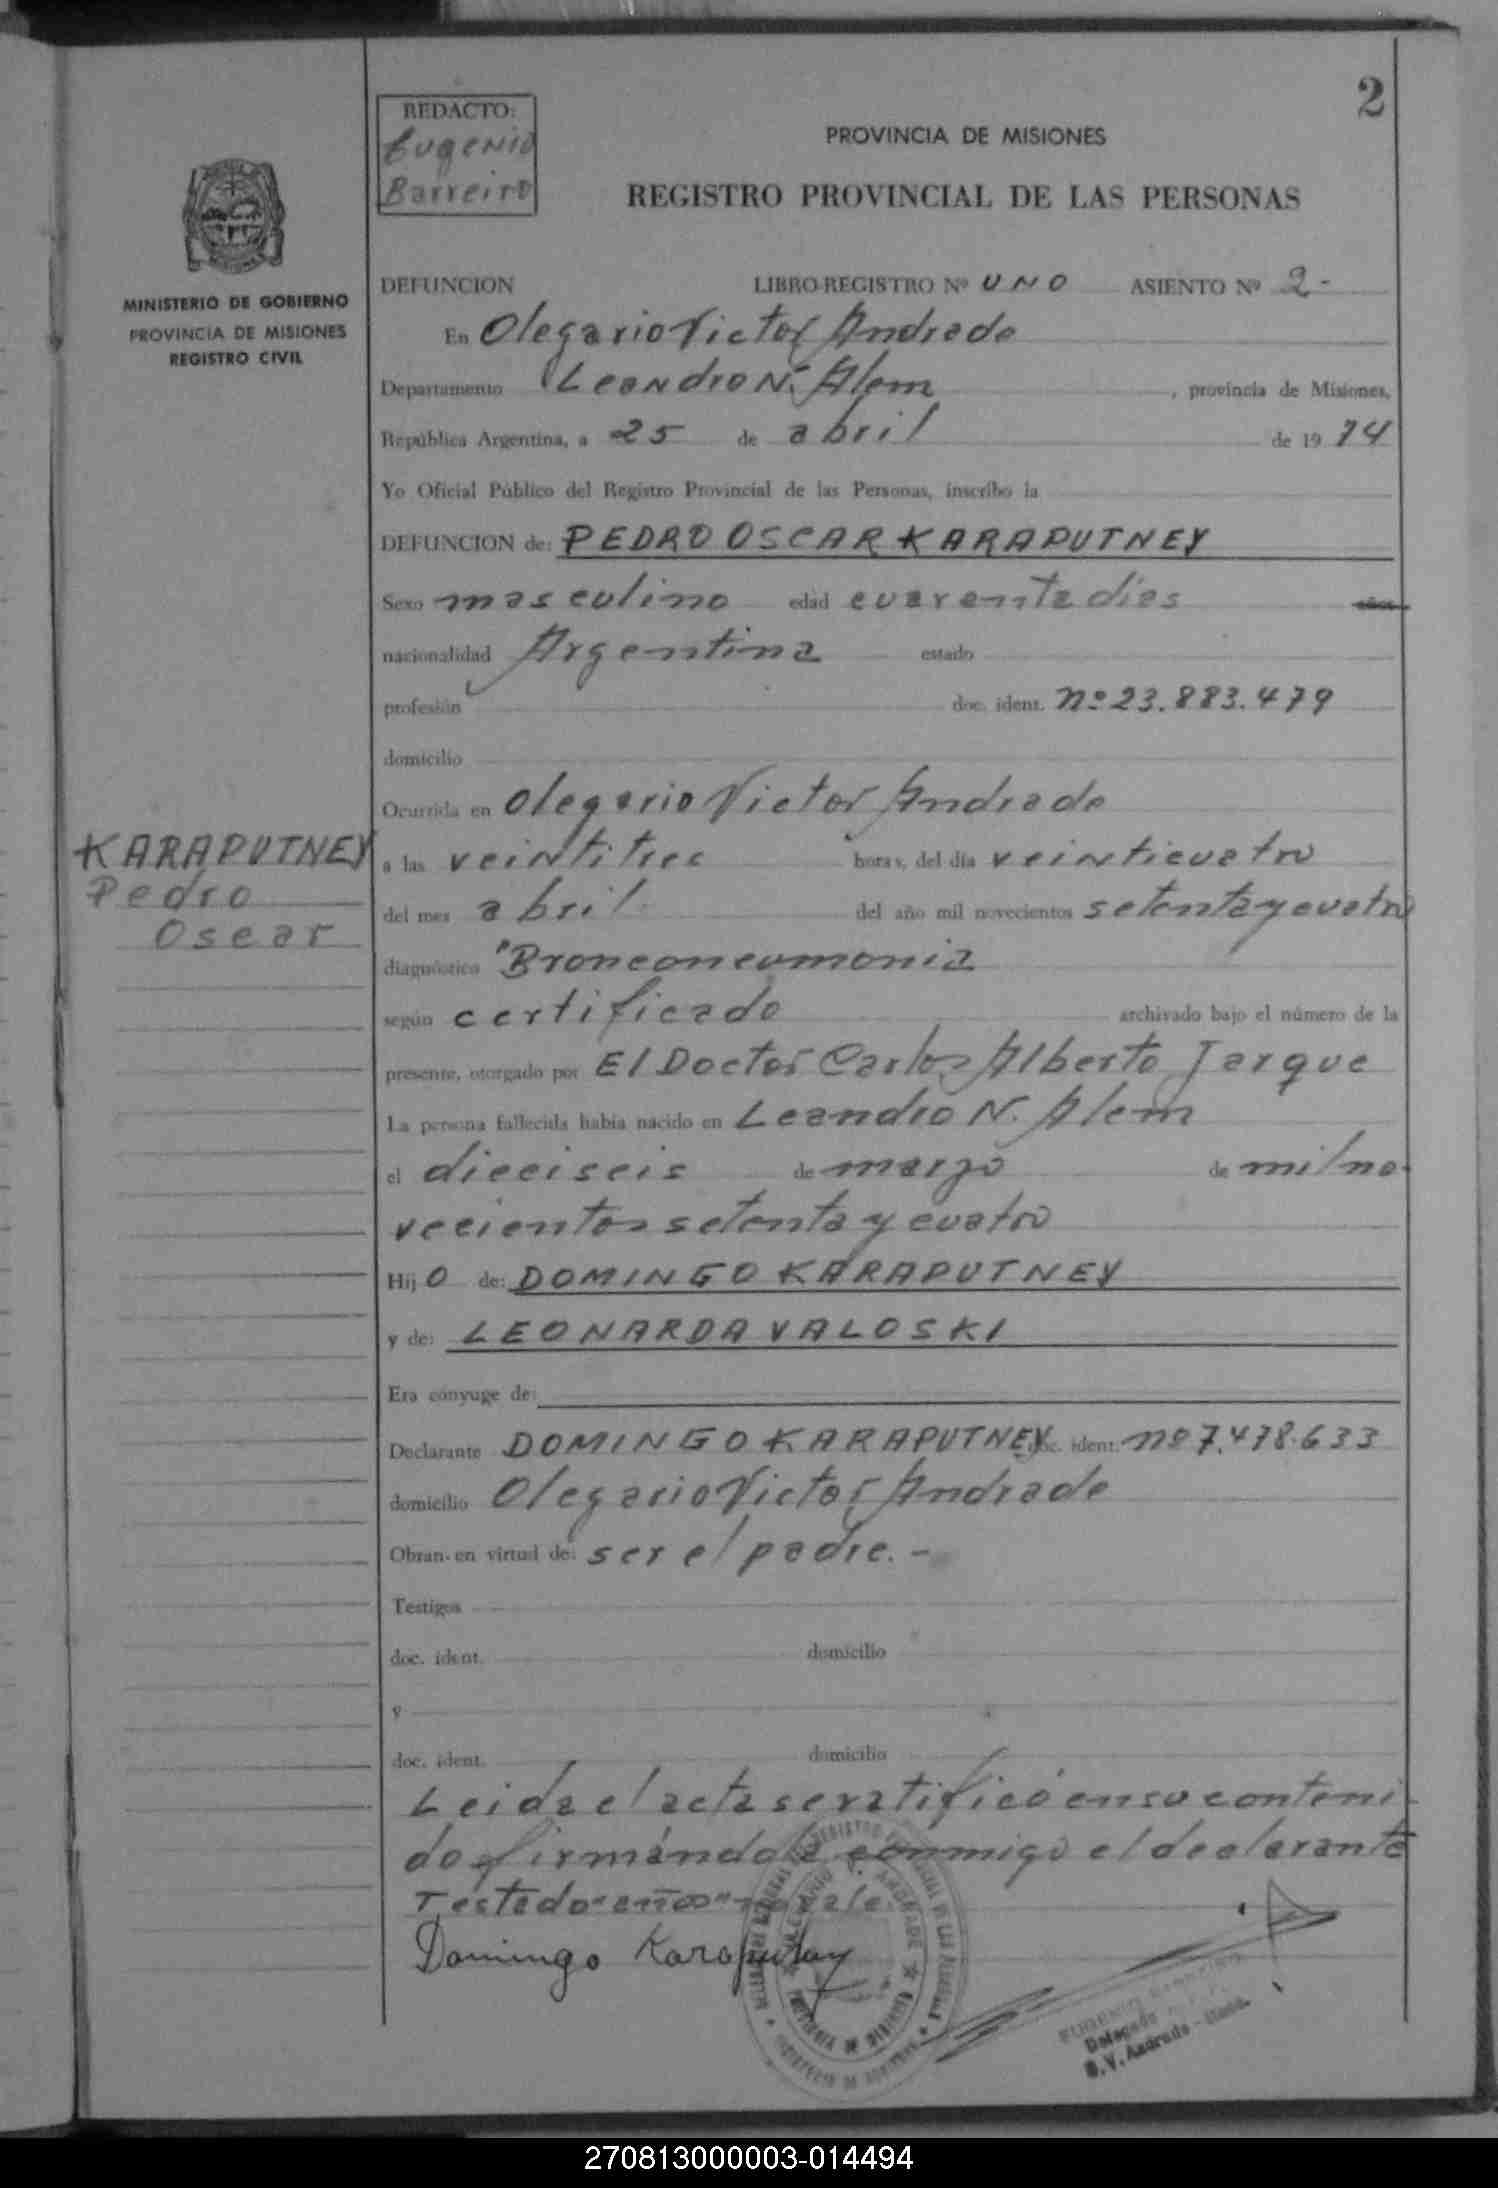 2
REDACTO:
Eugenio
Barreiro
PROVINCIA DE MISIONES
REGISTRO PROVINCIAL DE LAS PERSONAS
MINISTERIO DE GOBIERNO
PROVINCIA DE MISIONES
REGISTRO CIVIL
DEFUNCION LIBRO-REGISTRO Nº UNO ASIENTO Nº 2-
En Olegario Victor Andrade
Departamento Leandro N. Alem, provincia de Misiones,
República Argentina, a 25 de abril de 19 74
Yo Oficial Público del Registro Provincial de las Personas, inscribo la
DEFUNCION de: PEDRO OSCAR KARAPUTNEY
Sexo masculino edad cuarenta dias años
nacionalidad Argentina estado
profesión doc. ident. nº 23.883.479
domicilio
Ocurrida en Olegario Victor Andrade
KARAPUTNEY
Pedro
Oscar
a las veintitres horas, del día veinticuatro
del mes abril del año mil novecientos setenta y cuatro
diagnóstico "Bronconeumonia
según certificado archivado bajo el número de la
presente, otorgado por El Doctor Carlos Alberto Jarque
La persona fallecida había nacido en Leandro N. Alem
el dieciseis de marzo de mil no-
vecientos setenta y cuatro
Hij O de: DOMINGO KARAPUTNEY
y de: LEONARDA VALOSKI
Era cónyuge de:
Declarante DOMINGO KARAPUTNEY doc. ident. nº 7.478.633
domicilio Olegario Victor Andrade
Obran en virtud de: ser el padre.-
Testigos
doc. ident. domicilio
y
doc. ident. domicilio
Leida el acta se ratificó en su conteni-
do firmándola conmigo el declarante
Testado "años" no vale.
Domingo Karaputney
EUGENIO BARREIRO
Delegado
O. V. Andrade - Mnes.
270813000003-014494